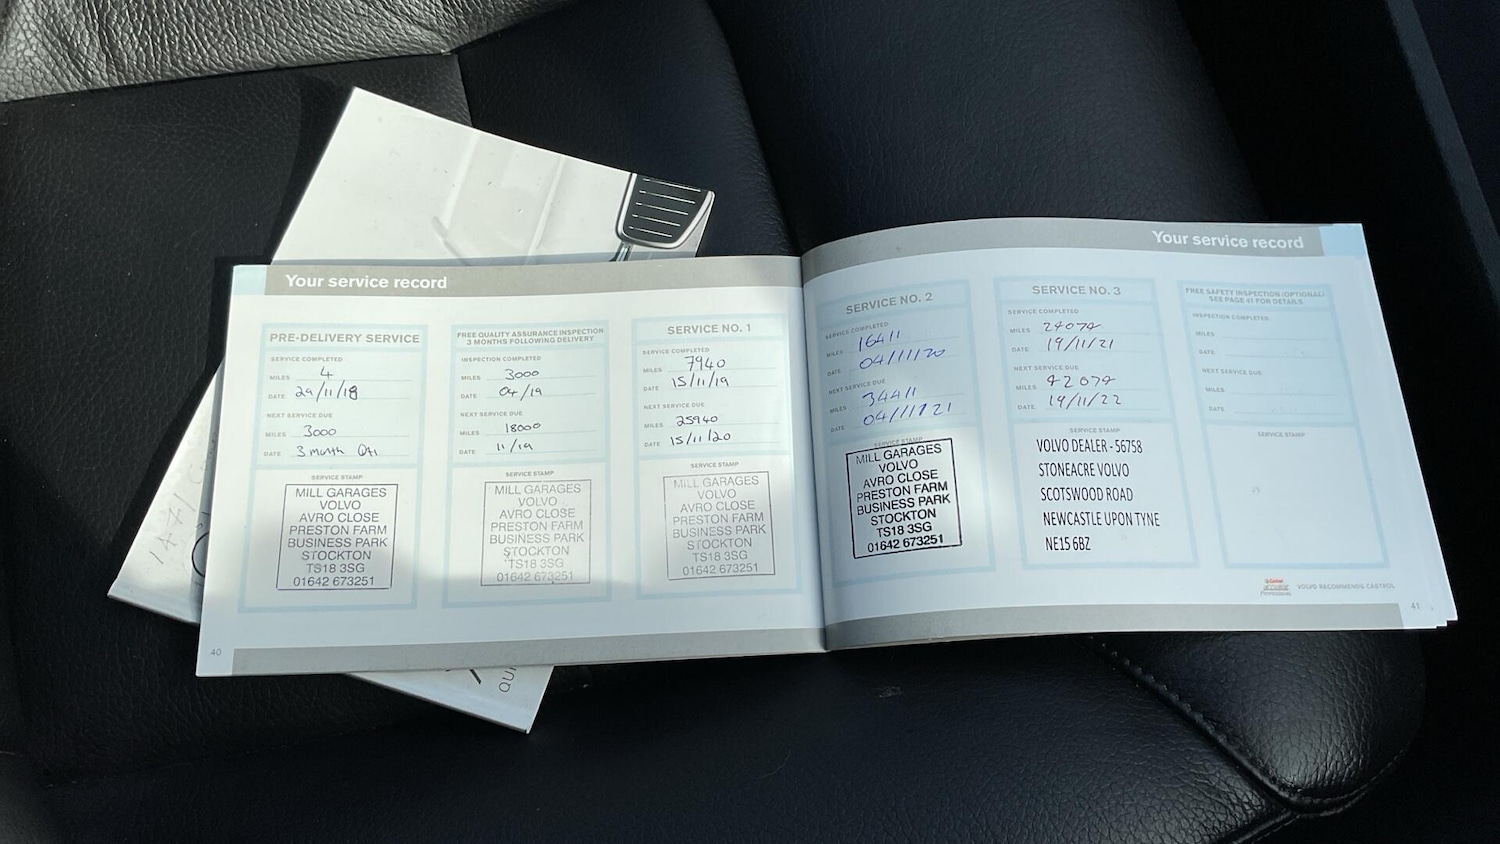 Your service record
PRE-DELIVERY SERVICE
SERVICE COMPLETED
MILES 4
DATE 29/11/18
NEXT SERVICE DUE
MILES 3000
DATE 3 month
SERVICE STAMP
MILL GARAGES
VOLVO
AVRO CLOSE
PRESTON FARM
BUSINESS PARK
STOCKTON
TS18 3SG
01642 673251
FREE QUALITY ASSURANCE INSPECTION
3 MONTHS FOLLOWING DELIVERY
INSPECTION COMPLETED
MILES 3000
DATE 04/19
NEXT SERVICE DUE
MILES 18000
DATE 11/19
SERVICE STAMP
MILL GARAGES
VOLVO
AVRO CLOSE
PRESTON FARM
BUSINESS PARK
STOCKTON
TS18 3SG
01642 673251
SERVICE NO. 1
SERVICE COMPLETED
MILES 7940
DATE 15/11/19
NEXT SERVICE DUE
MILES 25940
DATE 15/11/20
SERVICE STAMP
MILL GARAGES
VOLVO
AVRO CLOSE
PRESTON FARM
BUSINESS PARK
STOCKTON
TS18 3SG
01642 673251
40
Your service record
SERVICE NO. 2
SERVICE COMPLETED
MILES 16411
DATE 04/11/20
NEXT SERVICE DUE
MILES 34411
DATE 04/11/21
SERVICE STAMP
MILL GARAGES
VOLVO
AVRO CLOSE
PRESTON FARM
BUSINESS PARK
STOCKTON
TS18 3SG
01642 673251
SERVICE NO. 3
SERVICE COMPLETED
MILES 24074
DATE 19/11/21
NEXT SERVICE DUE
MILES 42074
DATE 19/11/22
SERVICE STAMP
VOLVO DEALER - 56758
STONEACRE VOLVO
SCOTSWOOD ROAD
NEWCASTLE UPON TYNE
NE15 6BZ
FREE SAFETY INSPECTION (OPTIONAL)
SEE PAGE 41 FOR DETAILS
INSPECTION COMPLETED
MILES
DATE
NEXT SERVICE DUE
MILES
DATE
SERVICE STAMP
Castrol
VOLVO RECOMMENDS CASTROL
41
QUI